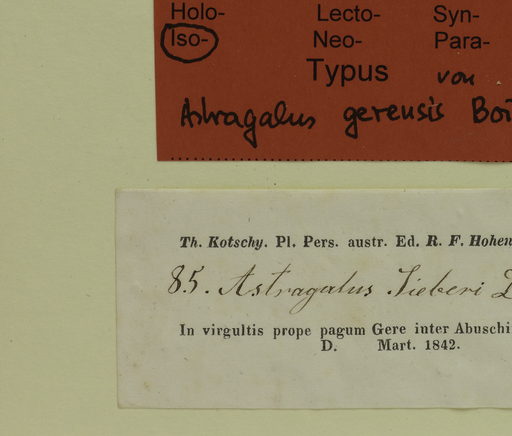 Holo- Lecto- Syn-
Iso- Neo- Para-
Typus von
Astragalus gerensis Boi
Th. Kotschy. Pl. Pers. austr. Ed. R. F. Hohen
85. Astragalus Sieberi D
In virgultis prope pagum Gere inter Abuschi
D. Mart. 1842.